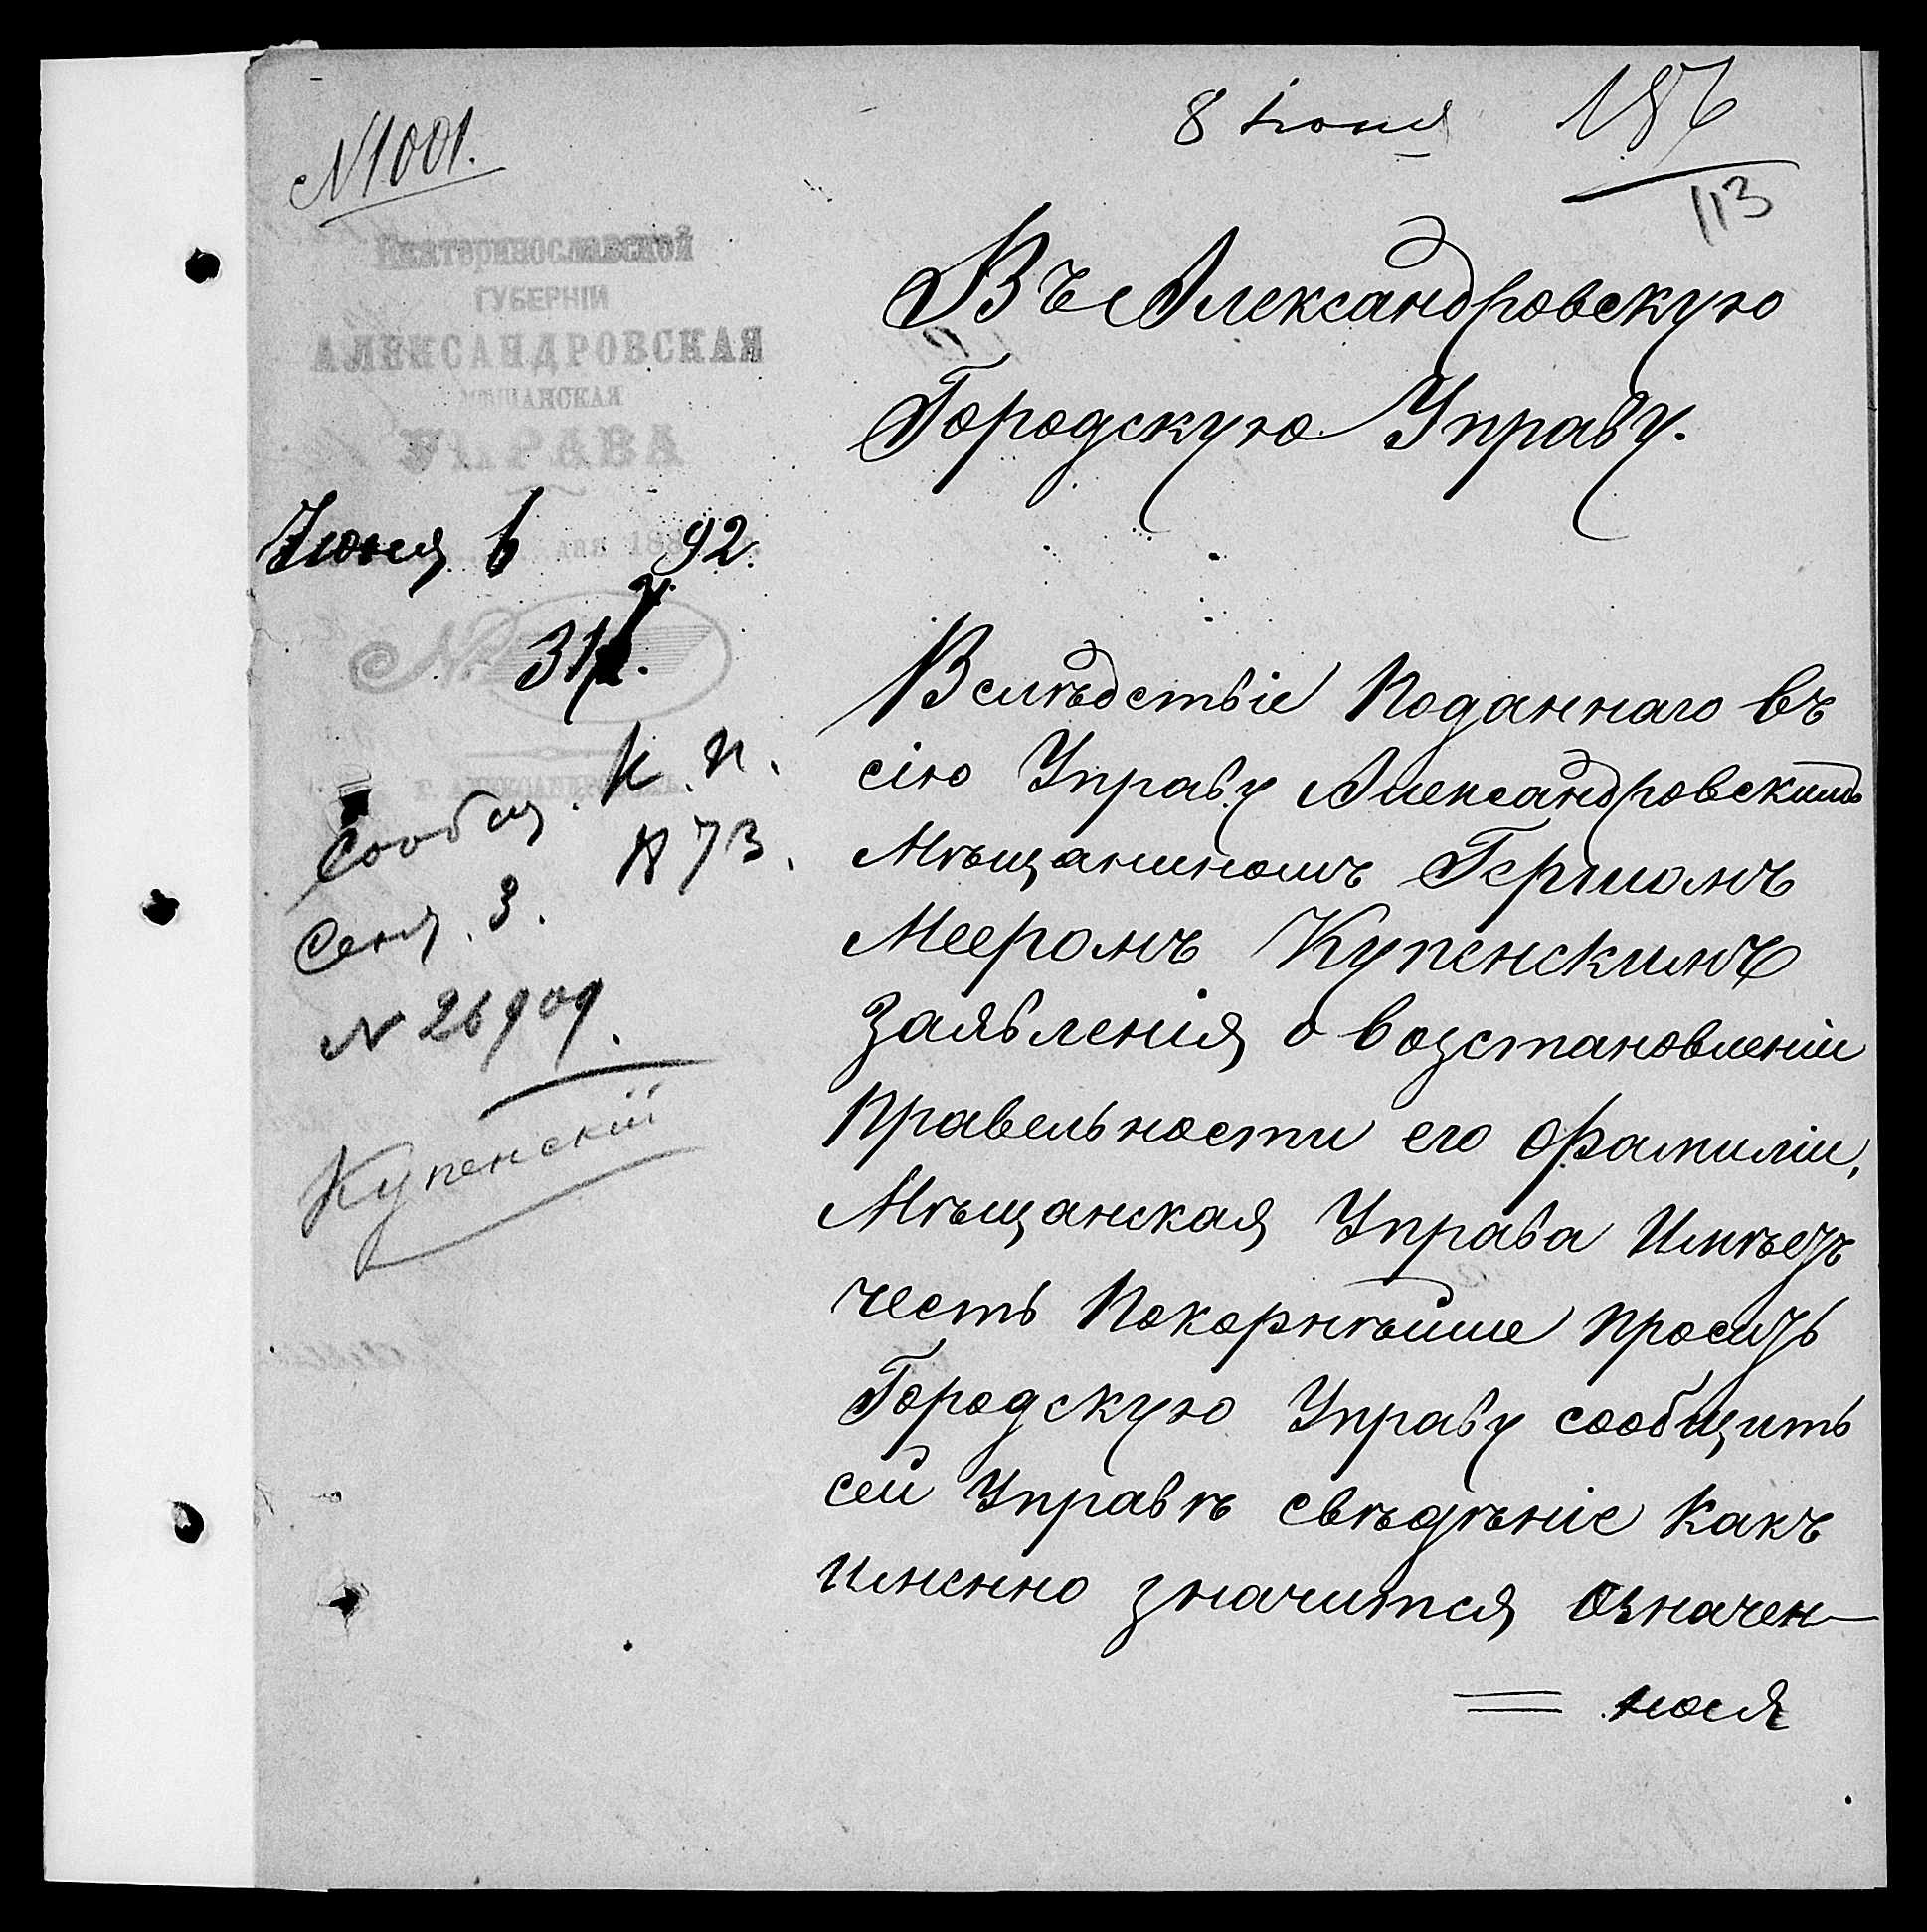 № 1001.
8 Іюня
186
113
Екатеринославской
ГУБЕРНІИ
АЛЕКСАНДРОВСКАЯ
МѢЩАНСКАЯ
УПРАВА
Іюня 6 дня 1892.
№ 317.
Г. АЛЕКСАНДРОВСКЪ.
Сообщ. к. п.
№ 73.
Сент. 3.
№ 26909.
Купенскій
Въ Александровскую
Городскую Управу.
Вслѣдствіе Поданнаго въ
сію Управу Александровскимъ
Мѣщаниномъ Гершомъ
Мееромъ Купенскимъ
Заявленія о возстановленіи
правельности его фамиліи,
Мѣщанская Управа Имѣетъ
честь Покорнѣйше просить
Городскую Управу сообщить
сей Управѣ свѣдѣніе Какъ
именно значится Означен-
= ная